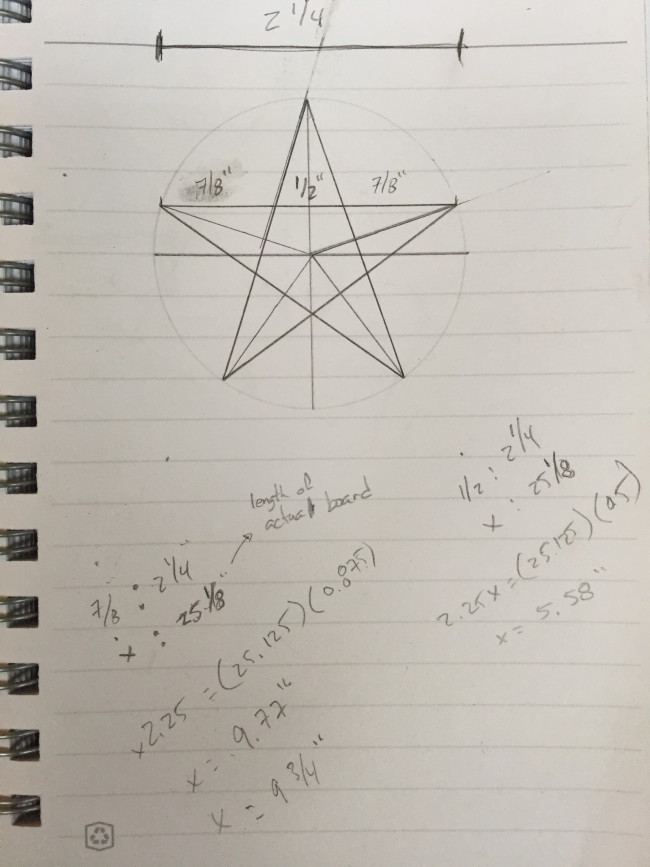 2 1/4
7/8" 1/2" 7/8"
length of
actual board
7/8 : 2 1/4"
x : 25 1/8"
x2.25 = (25.125)(0.875)
x = 9.77"
x = 9 3/4"
1/2 : 2 1/4
x : 25 1/8
2.25x = (25.125)(0.5)
x = 5.58"